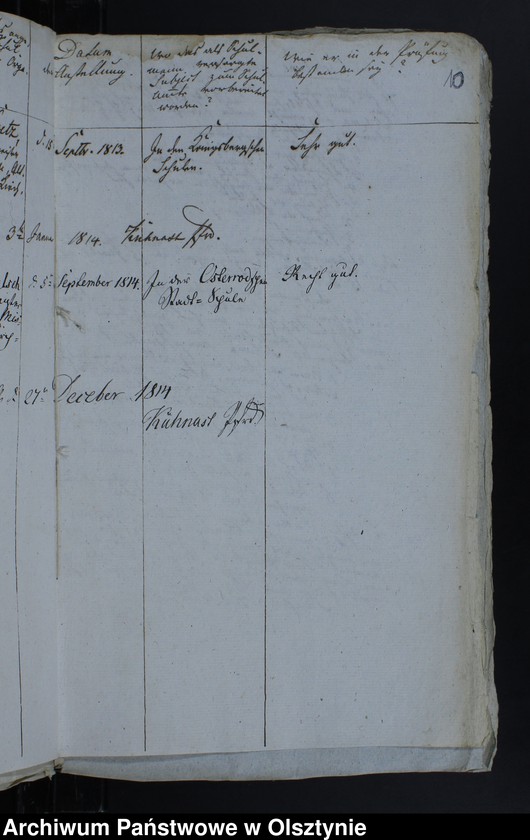 10
Datum
der Anstellung.
Wo das als Schul-
mann versorgte
Subject zum Schul-
amte vorbereitet
worden?
Wie er in der Prüfung
bestanden sey?
d. 18 Septbr. 1813.
In den Königsbergschen
Schulen.
Sehr gut.
3t Janu 1814. Kühnast Pfrd.
d. 5t September 1814.
In der Osterrodschen
Stadt=Schule
Recht gut.
27t Deceber 1814
Kühnast Pfrd
Archiwum Państwowe w Olsztynie